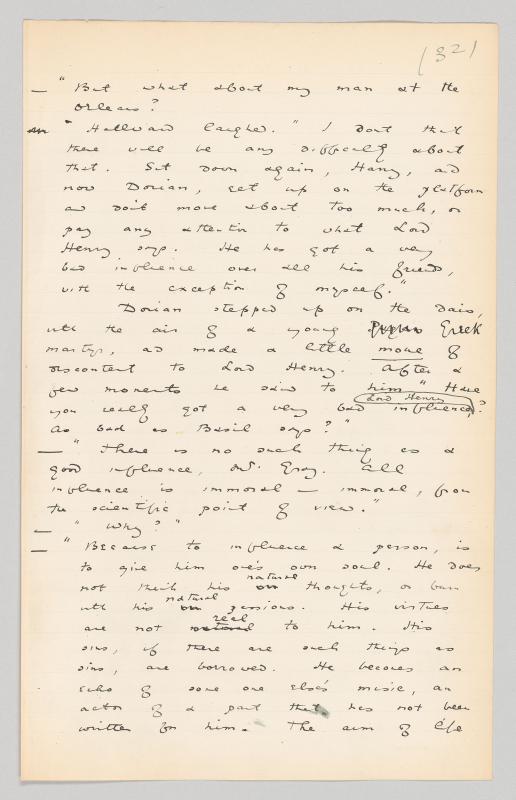 (32)
— "But what about my man at the
Orleans?
" Hallward laughed. " I dont think
there will be any difficulty about
that. Sit down again, Harry, and
now Dorian, get up on the platform
and dont move about too much, or
pay any attention to what Lord
Henry says. He has got a very
bad influence over all his friends,
with the exception of myself."
Dorian stepped up on the dais,
with the air of a young Greek
martyr, and made a little moue of
discontent to Lord Henry. After a
few moments he said to him "Have
Lord Henry
you really got a very bad influence?
As bad as Basil says?"
— "There is no such thing as a
good influence, Mr. Gray. All
influence is immoral — immoral, from
the scientific point of view."
— "Why?"
— "Because to influence a person, is
to give him one's own soul. He does
natural
not think his own thoughts, or burn
natural
with his own passions. His virtues
real
are not natural to him. His
sins, if there are such things as
sins, are borrowed. He becomes an
echo of some one else's music, an
actor of a part that has not been
written for him. The aim of life